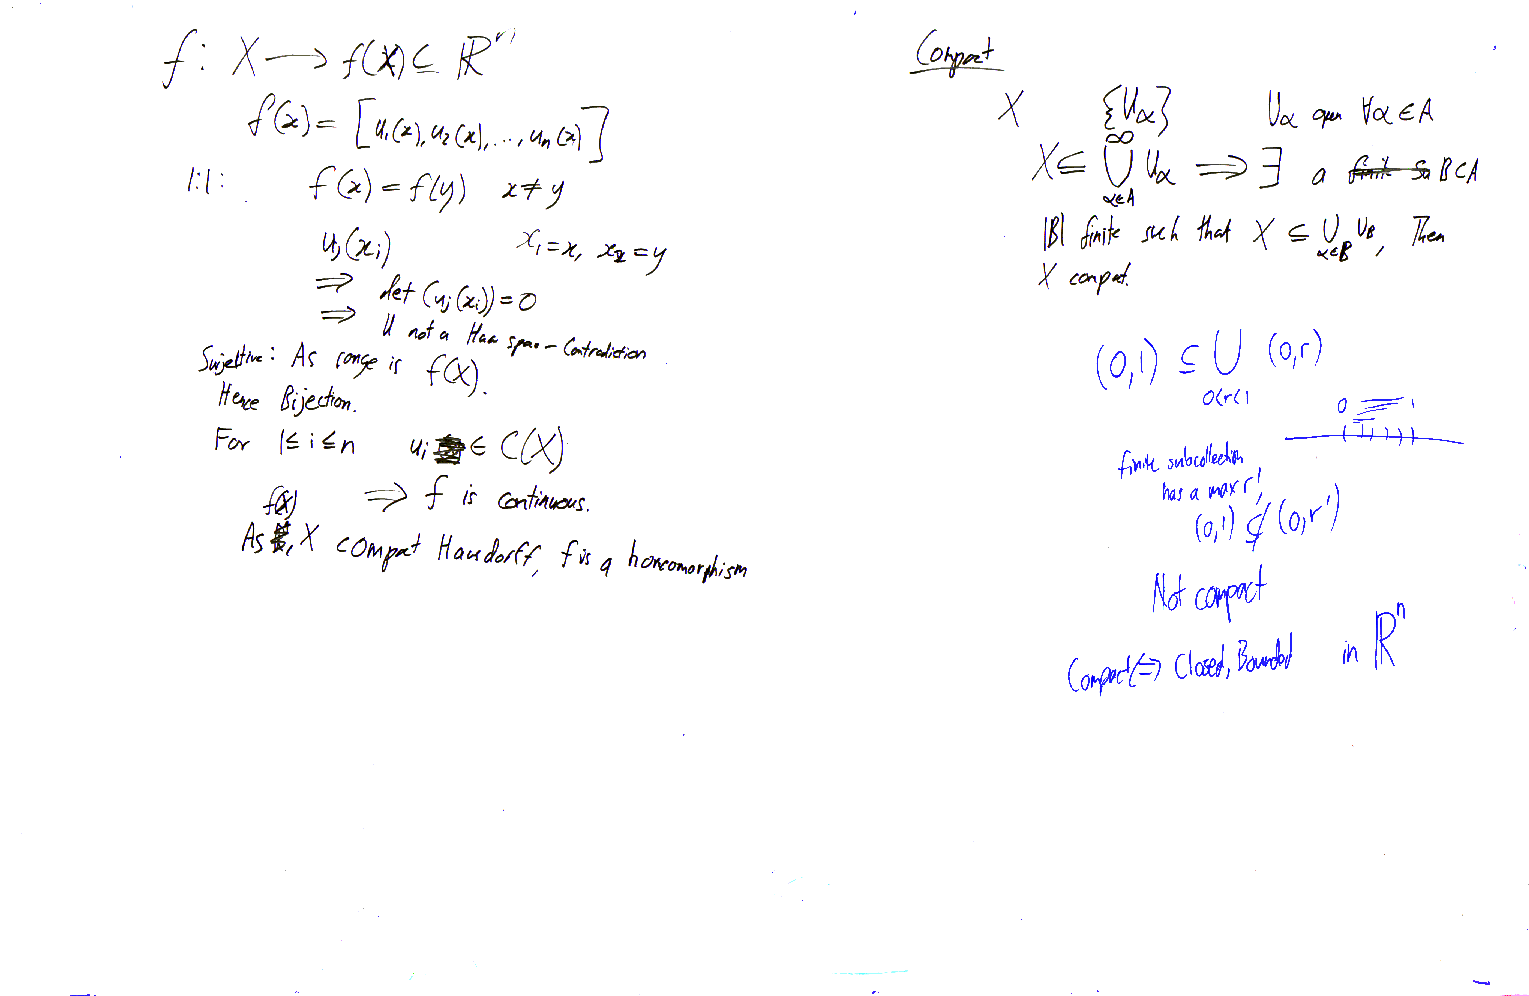 f: X ⟶ f(X) ⊆ ℝⁿ
f(x) = [u₁(x), u₂(x), ..., uₙ(x)]
1:1: f(x) = f(y) x ≠ y
uⱼ(xᵢ) x₁ = x, x₂ = y
⟹ det(uⱼ(xᵢ)) = 0
⟹ U not a Haa space - Contradiction
Surjective: As range is f(X).
Hence Bijection.
For 1 ≤ i ≤ n uᵢ ∈ C(X)
f(X) ⟹ f is continuous.
As , X compact Hausdorff, f is a homeomorphism
Compact
X {Uα} Uα open ∀α ∈ A
X ⊆ ∞⋃α∈A Uα ⟹ ∃ a finite su B ⊂ A
|B| finite such that X ⊆ ⋃α∈B UB, Then
X compact.
(0,1) ⊆ ⋃0<r<1 (0,r)
0 1
finite subcollection
has a max r'
(0,1) ⊄ (0,r')
Not compact
Compact ⟺ Closed, Bounded in ℝⁿ